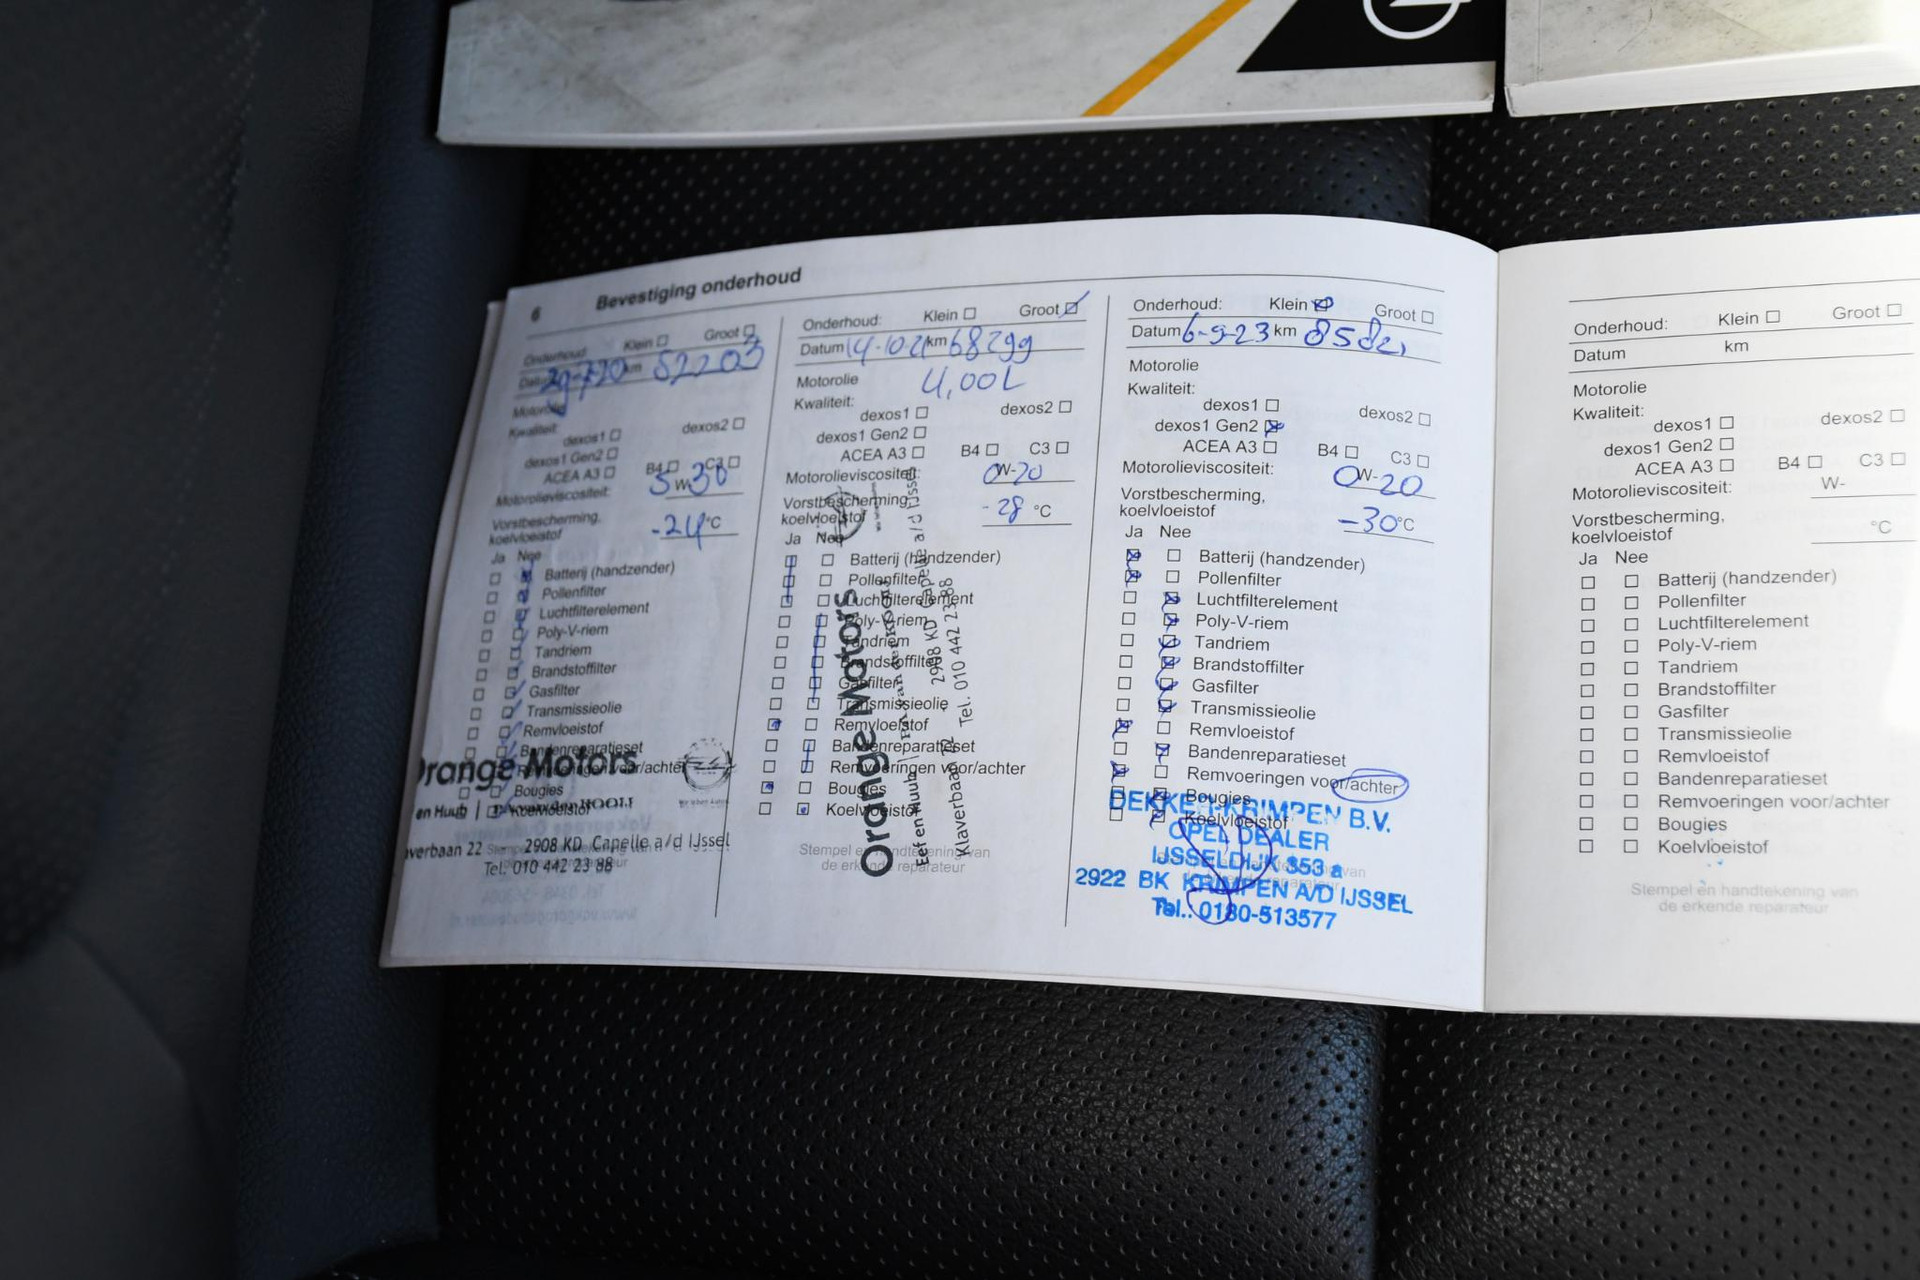 6 Bevestiging onderhoud
Onderhoud: Klein Groot
Datum 29-7-20 km 52203
Motorolie
Kwaliteit:
dexos1 dexos2
dexos1 Gen2
ACEA A3 B4 C3
Motorolieviscositeit: 5 W-30
Vorstbescherming,
koelvloeistof -24 °C
Ja Nee
Batterij (handzender)
Pollenfilter
Luchtfilterelement
Poly-V-riem
Tandriem
Brandstoffilter
Gasfilter
Transmissieolie
Remvloeistof
Bandenreparatieset
Remvoeringen voor/achter
Bougies
Koelvloeistof
Orange Motors
en Huub
verbaan 22 2908 KD Capelle a/d IJssel
Tel. 010 442 23 88
Onderhoud: Klein Groot
Datum 14-10-21 km 68299
Motorolie 4,00L
Kwaliteit:
dexos1 dexos2
dexos1 Gen2
ACEA A3 B4 C3
Motorolieviscositeit: 0W-20
Vorstbescherming,
koelvloeistof -28 °C
Ja Nee
Batterij (handzender)
Pollenfilter
Luchtfilterelement
Poly-V-riem
Tandriem
Brandstoffilter
Gasfilter
Transmissieolie
Remvloeistof
Bandenreparatieset
Remvoeringen voor/achter
Bougies
Koelvloeistof
Stempel en handtekening van
de erkende reparateur
Orange Motors
Eef en Huub
Klaverbaan 22 2908 KD Capelle a/d IJssel
Tel. 010 442 23 88
Onderhoud: Klein Groot
Datum 6-9-23 km
Motorolie
Kwaliteit:
dexos1 dexos2
dexos1 Gen2
ACEA A3 B4 C3
Motorolieviscositeit: 0W-20
Vorstbescherming,
koelvloeistof -30°C
Ja Nee
Batterij (handzender)
Pollenfilter
Luchtfilterelement
Poly-V-riem
Tandriem
Brandstoffilter
Gasfilter
Transmissieolie
Remvloeistof
Bandenreparatieset
Remvoeringen voor/achter
Bougies
Koelvloeistof
KRIMPEN B.V.
OPEL DEALER
IJSSELDIJK 353 a
2922 BK KRIMPEN A/D IJSSEL
Tel.: 0180-513577
Onderhoud: Klein Groot
Datum km
Motorolie
Kwaliteit:
dexos1 dexos2
dexos1 Gen2
ACEA A3 B4 C3
Motorolieviscositeit: W-
Vorstbescherming,
koelvloeistof °C
Ja Nee
Batterij (handzender)
Pollenfilter
Luchtfilterelement
Poly-V-riem
Tandriem
Brandstoffilter
Gasfilter
Transmissieolie
Remvloeistof
Bandenreparatieset
Remvoeringen voor/achter
Bougies
Koelvloeistof
Stempel en handtekening van
de erkende reparateur